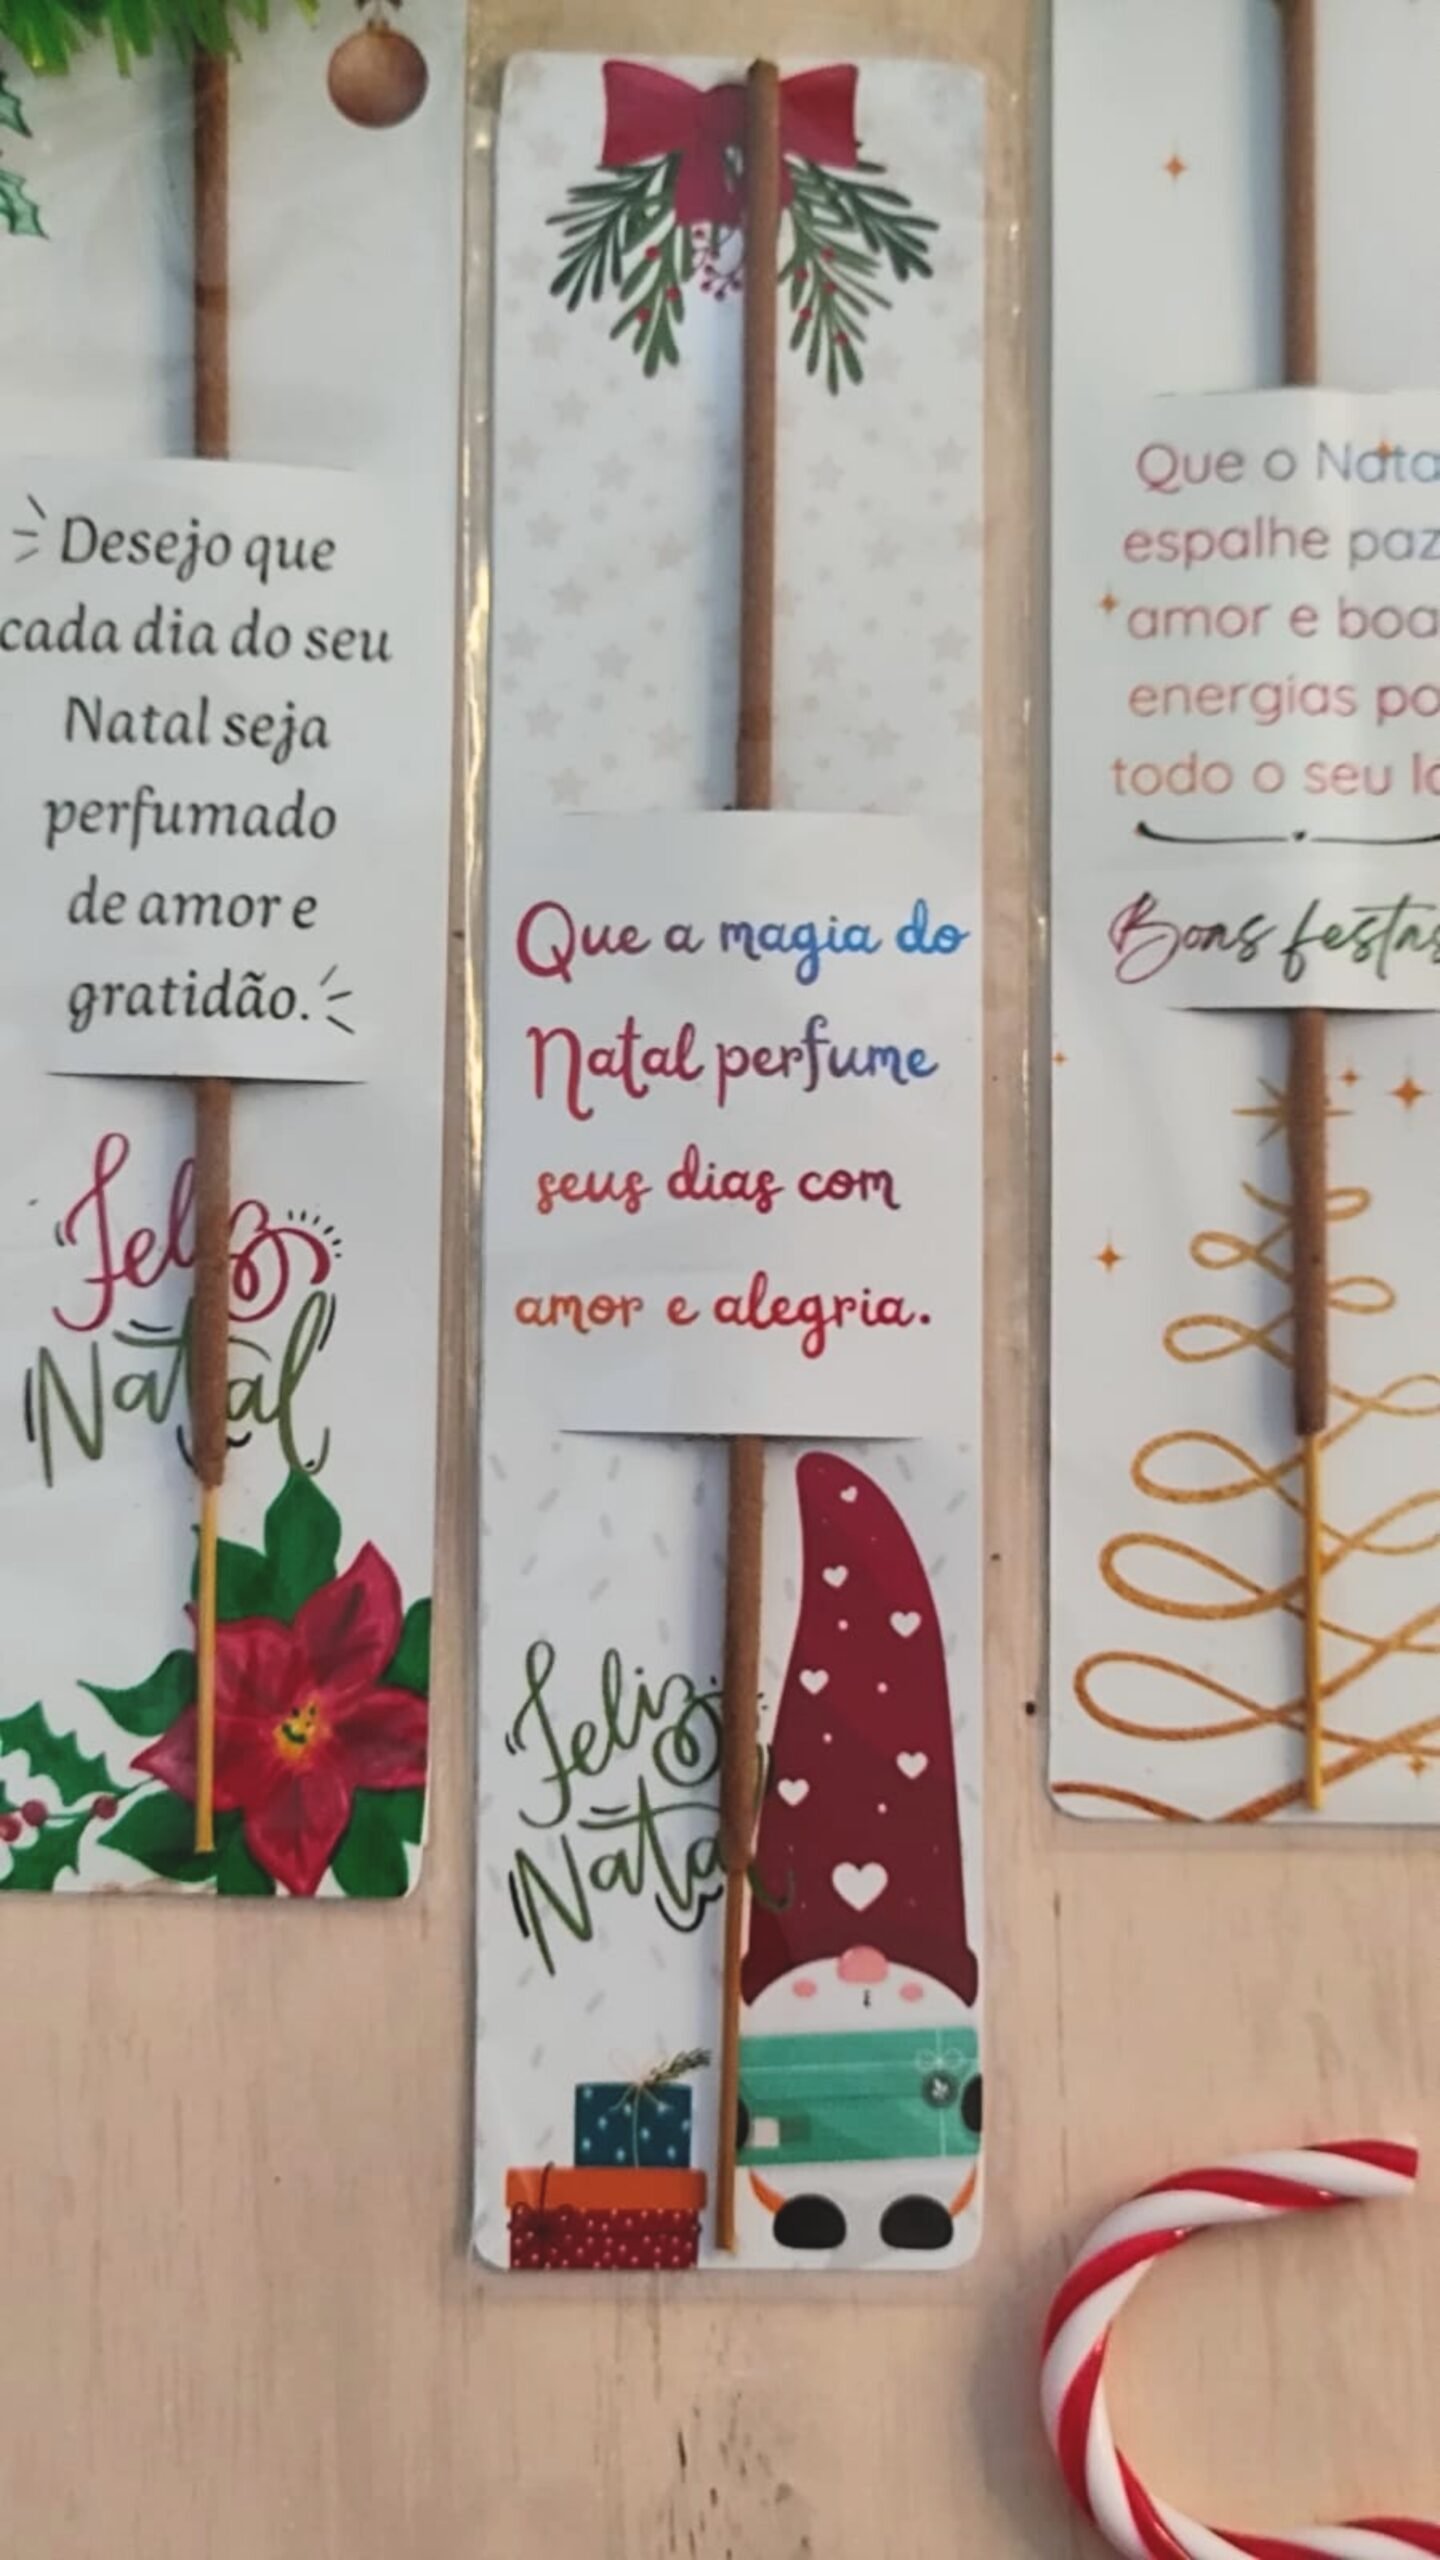 Desejo que
cada dia do seu
Natal seja
perfumado
de amor e
gratidão.
Feliz
Natal
Que a magia do
Natal perfume
seus dias com
amor e alegria.
Feliz
Natal
Que o Nata
espalhe paz
amor e boa
energias po
todo o seu
Boas festas